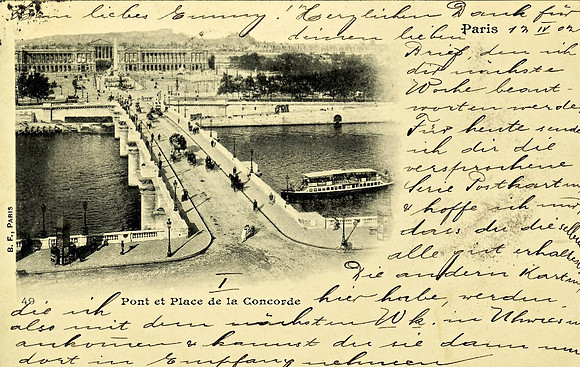 Mein liebes Emmy! Herzlichen Dank für
deinen lieben
Paris 12 IV 02
Brief den ich
die nächste
Woche beant-
worten werde
Für heute sende
ich dir die
versprochene
Serie Postkarten
& hoffe ich nur
dass du dieselb
alle gut erhalten
Die andern Karten
B. F., PARIS
I
49 Pont et Place de la Concorde
die ich hier habe, werden
also mit dem nächsten Wk. in
ankommen & kannst du sie dann nur
dort in Empfang nehmen